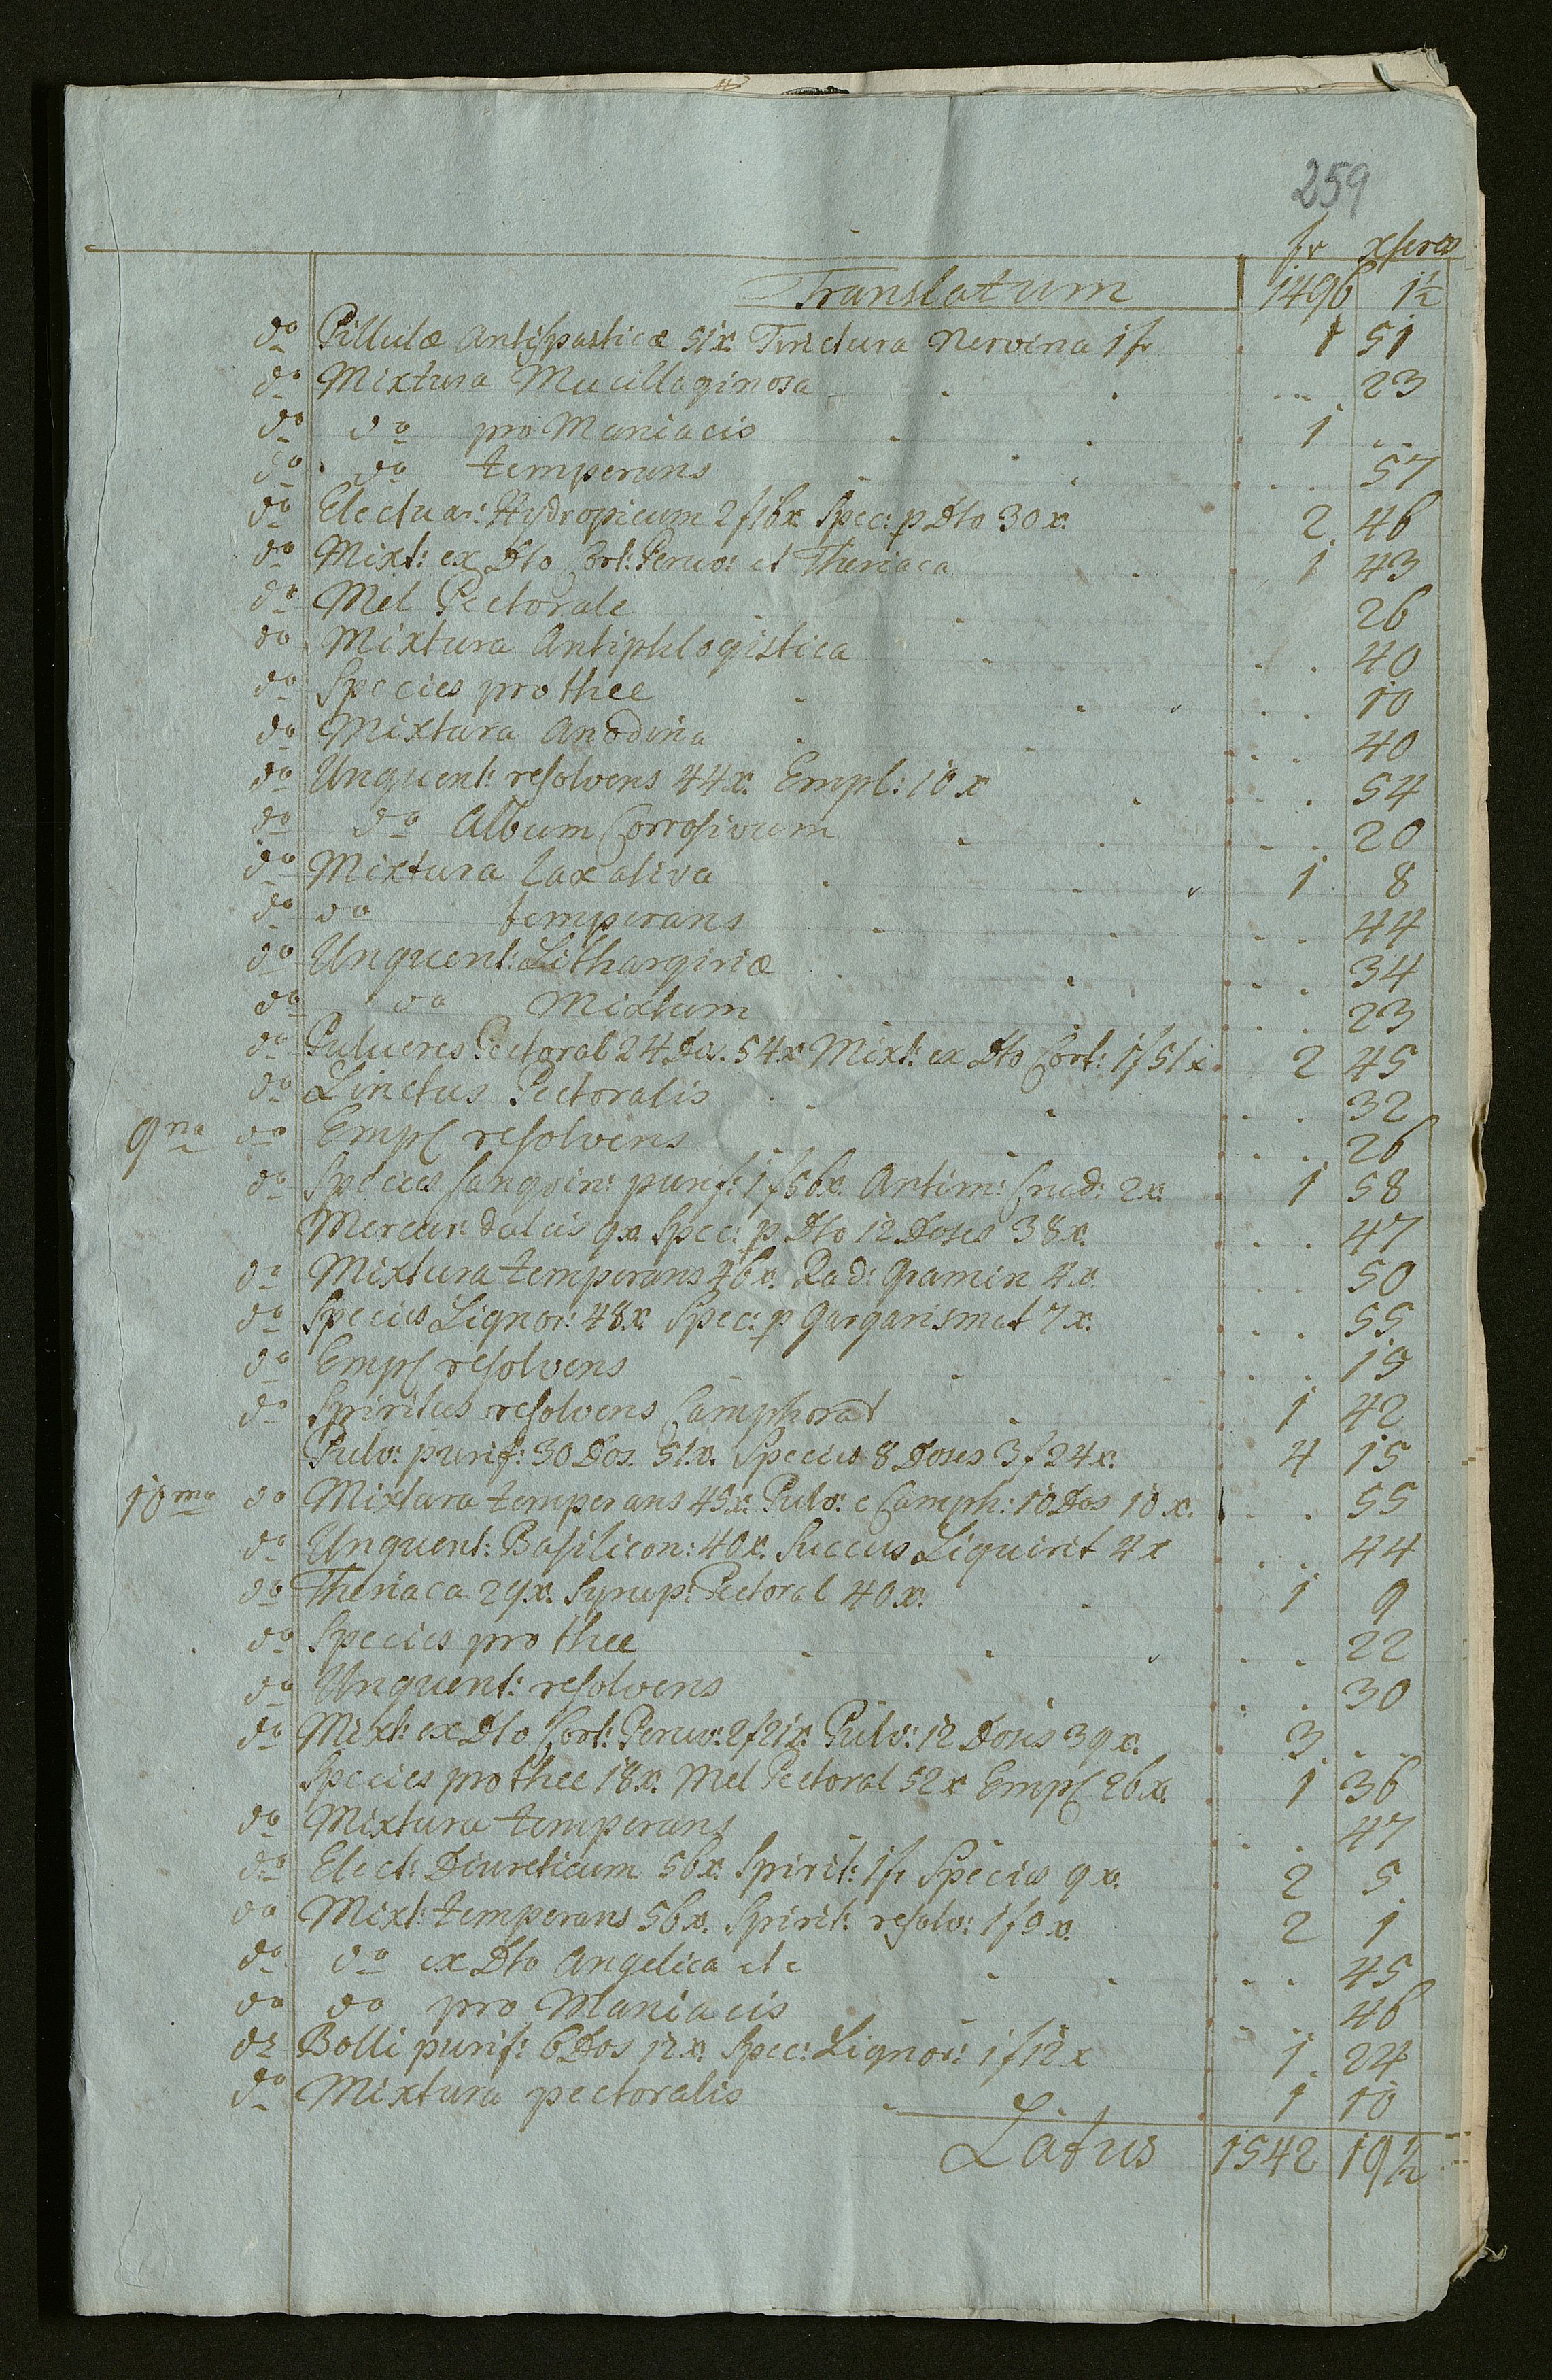 259
fr xferos
Translatum 1496 1½
do Pillulæ Antispasticæ 51x. Tinctura Nervina 1f 1 51
do Mixtura Mucillaginosa 23
do do pro Maniacis 1
do do temperans 57
do Electuar: Hydropicum 2f16x. Spec: p Dto 30x. 2 46
do Mixt: ex Dto Cort: Peruv: et Theriaca 1 43
do Mel Pectorale 26
do Mixtura Antiphlogistica 40
do Species pro thee 10
do Mixtura Anodina 40
do Unguent: resolvens 44x. Empl: 10x 54
do do Album Corrosivum 20
do Mixtura Laxativa 1 8
do do temperans 44
do Unguent: Lithargiriæ 34
do do Mixtum 23
do Pulveres Pectoral 24 Dos. 54x Mixt: ex Dto Cort: 1f51x. 2 45
do Linctus Pectoralis 32
9na do Empl resolvens 26
do Species sanguin: purif: 1f56x. Antim: Crud: 2x. 1 58
Mercur. dulcis 9x. Spec: p Dto 12 Doses 38x. 47
do Mixtura temperans 46x. Rad: Gramin 4x. 50
do Species Lignor: 48x. Spec: p Gargarismat 7x. 55
do Empl resolvens 15
do Spiritus resolvens Camphorat 1 42
Pulv: purif: 30 Dos. 51x. Species 8 Doses 3f24x. 4 15
10ma do Mixtura temperans 45x. Pulv: c Camph: 10 Dos 10x. 55
do Unguent: Basilicon: 40x. Succus Liquirit 4x 44
do Theriaca 29x. Syrup: Pectoral 40x. 1 9
do Species pro thee 22
do Unguent: resolvens 30
do Mixt: ex Dto Cort: Peruv: 2f21x: Pulv: 12 Doses 39x. 3
Species pro thee 18x. Mel Pectoral 52x Empl 26x. 1 36
do Mixtura temperans 47
do Elect: Diureticum 56x. Spirit: 1f Species 9x. 2 5
do Mixt: temperans 56x. Spirit: resolv: 1f5x. 2 1
do do ex Dto Angelica etc 45
do do pro Maniacis 46
do Bolli purif: 6 Dos 12x. Spec: Lignor: 1f12x 1 24
do Mixtura pectoralis 1 10
Latus 1542 19½